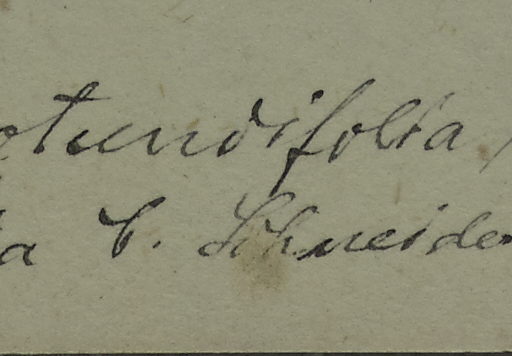 otundifolia,
a C. Schneider